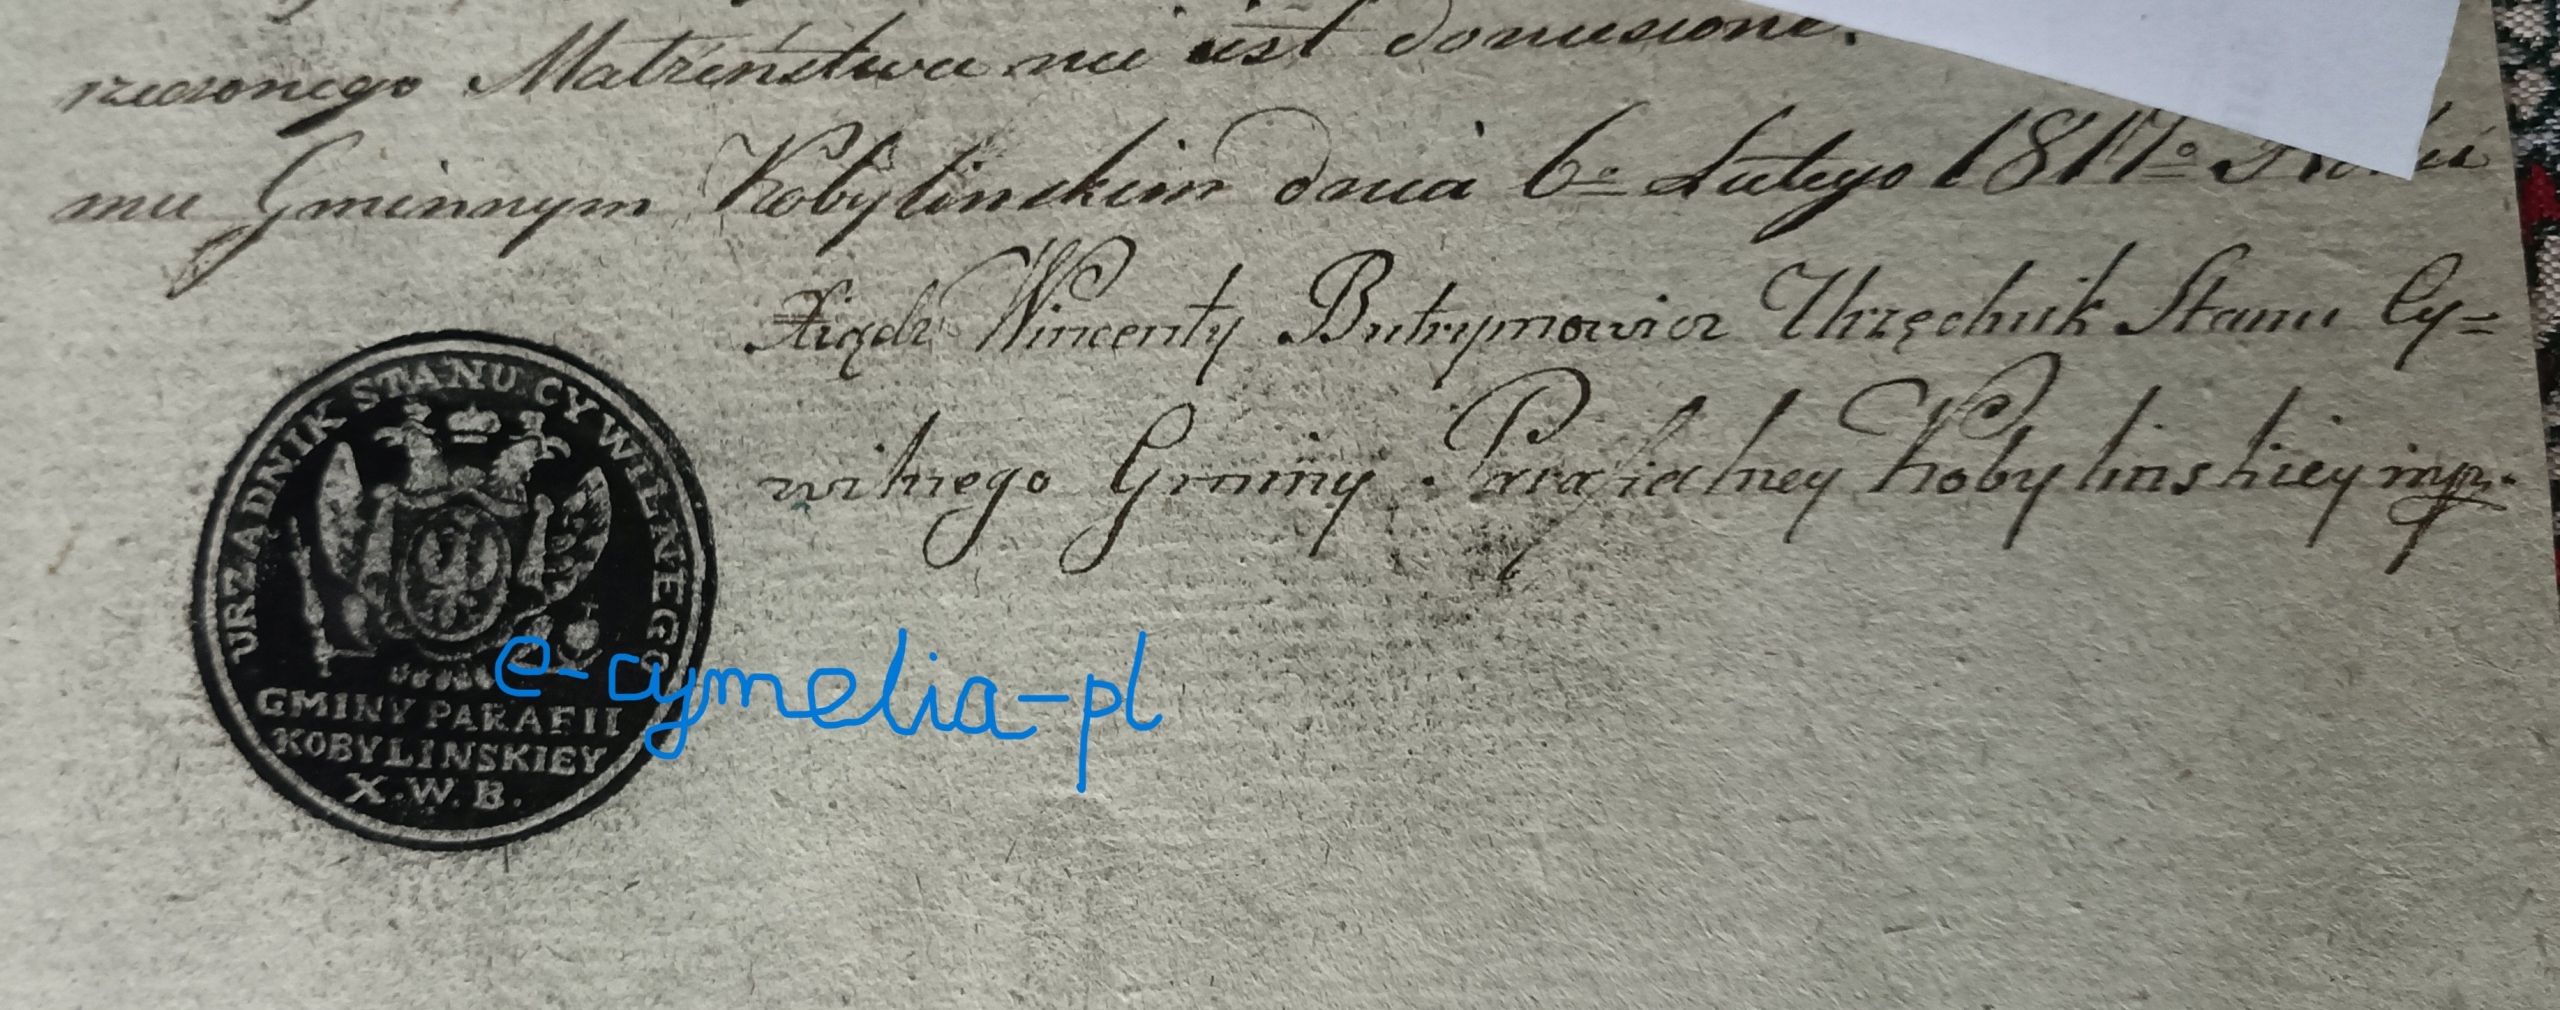 rzeczonego Małżeństwa nie iest doniesione.
mu Gminnym Kobylinskim dnia 6º Lutego 1817º Roku
Xiądz Wincenty Butrymowicz Urzędnik Stanu Cy=
wilnego Gminy Parafialney Kobylinskiey mp.
URZĄDNIK STANU CYWILNEGO
GMINY PARAFII
KOBYLINSKIEY
X.W.B.
e-cymelia-pl